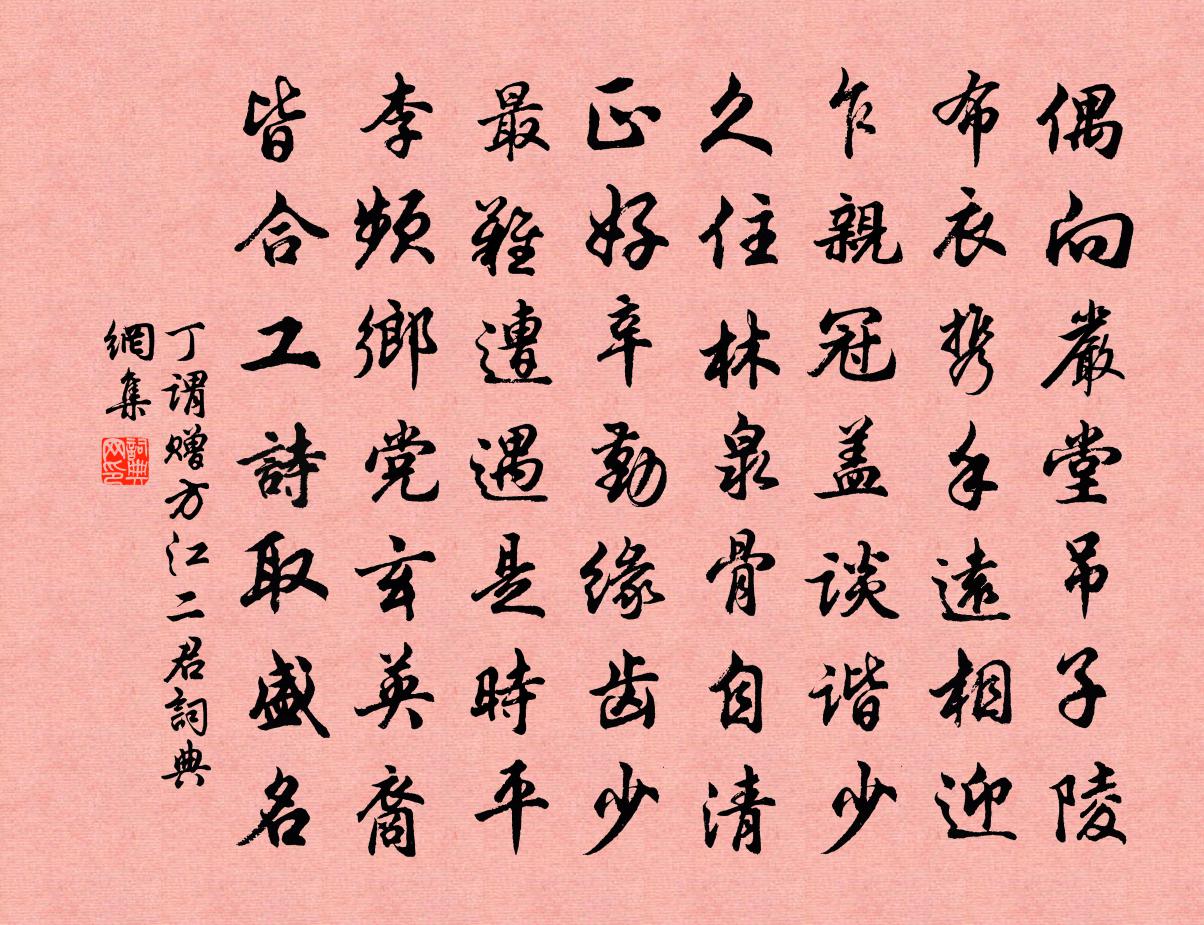 偶向嚴堂吊子陵
布衣携手遠相迎
乍親冠盖談谐少
久住林泉骨自清
正好辛勤緣齿少
最難遭遇是時平
李頻鄉党玄英裔
皆合工詩取盛名
丁谓赠方江二君詞典
網集
詞典
网印